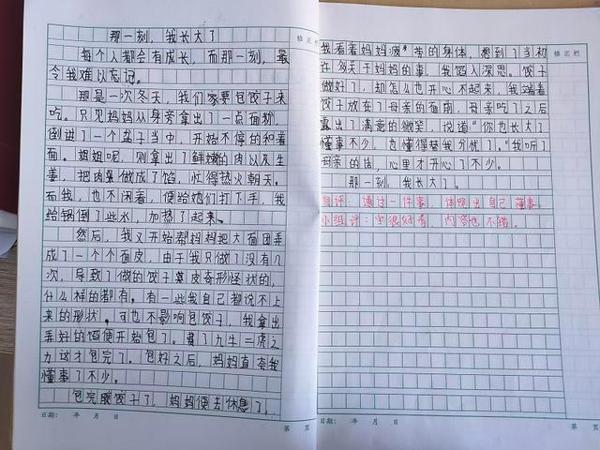 那一刻,我长大了
每个人都会有成长,而那一刻,最
令我难以忘记。
那是一次冬天,我们家要包饺子来
吃。只见妈妈从身旁拿出了一点面粉,
倒进了一个盆子当中,开始不停的和着
面。姐姐呢,则拿出了鲜嫩的肉以及生
姜,把肉集做成了馅,忙得热火朝天。
而我,也不闲着,便给她们打下手,我
给锅倒了些水,加热了起来。
然后,我又开始帮妈妈把大面团弄
成了一个个面皮,由于我只做了没有几
次,导致了做的饺子皮奇形怪状的,
什么样的都有。有一些我自己都说不上
来的形状。可也不影响包饺子,我拿出
弄好的馅便开始包了。费了九牛二虎之
力这才包完了。包好之后,妈妈直夸我
懂事了不少。
包完饺子了,妈妈便去休息了,
日期: 年 月 日
第 页
修正栏
我看着妈妈疲惫的身体,想到了当初
在冬天干妈妈的事,我陷入深思。饺子
做好了,却怎么也开心不起来,我端着
饺子放在了母亲的面前,母亲吃了之后
露出了满意的微笑,说道"你也长大了
懂事不少,也懂得替我分忧了。"我听了
母亲的话,心里才开心了不少。
那一刻,我长大了。
自评:通过一件事,体现出自己懂事
小组评:字很好看,内容也不错。
日期: 年 月 日
第 页
修正栏